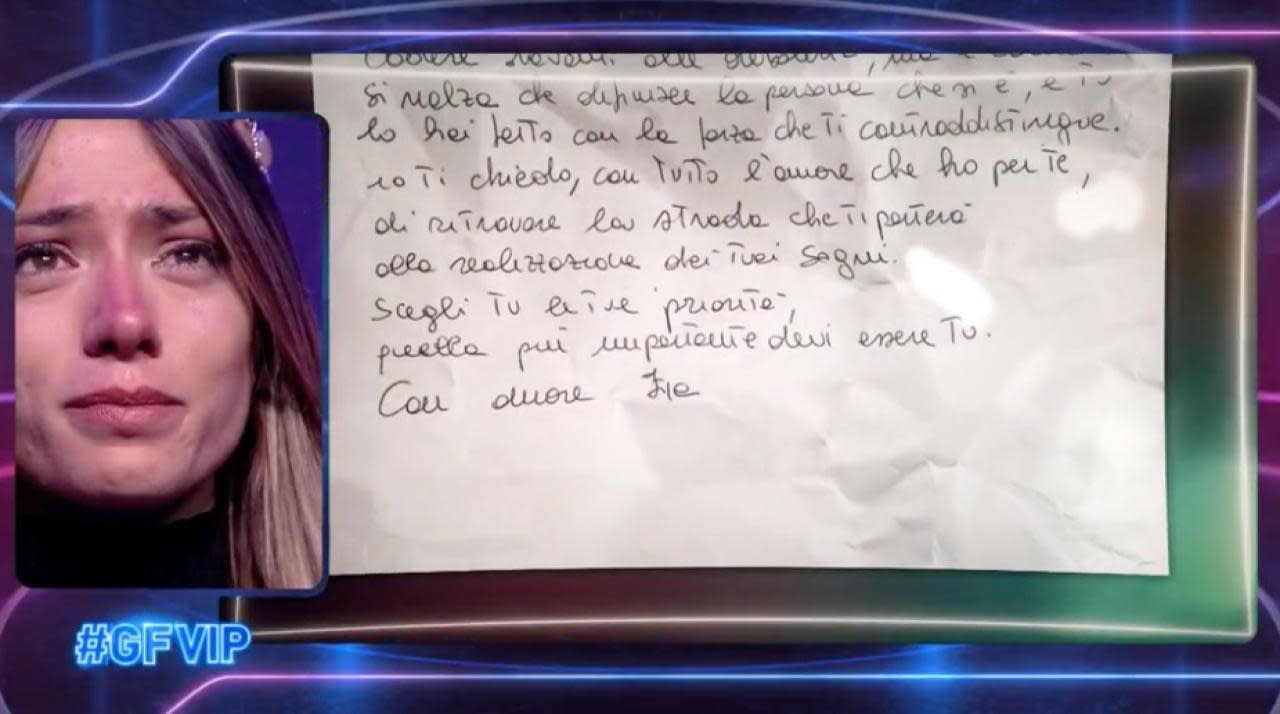 si rialza che dipinsee la persona che si è, e tu
lo hai fatto con la forza che ti contraddistingue.
io ti chiedo, con tutto l'amore che ho per te,
di ritrovare la strada che ti porterà
alla realizzazione dei tuoi sogni.
Scegli tu le tue priorità,
quella più importante devi essere tu.
Con amore
#GFVIP